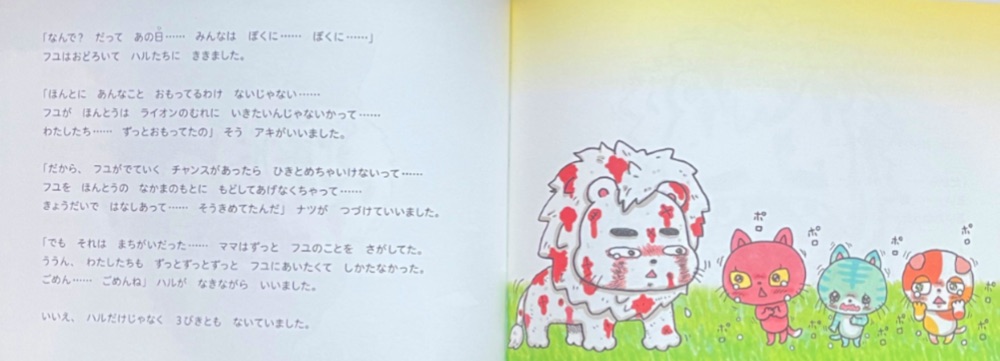 「なんで？　だって　あの日……　みんなは　ぼくに……　ぼくに……」
フユはおどろいて　ハルたちに　ききました。
「ほんとに　あんなこと　おもってるわけ　ないじゃない……
フユが　ほんとうは　ライオンのむれに　いきたいんじゃないかって……
わたしたち……　ずっとおもってたの」　そう　アキがいいました。
「だから、　フユがでていく　チャンスがあったら　ひきとめちゃいけないって……
フユを　ほんとうの　なかまのもとに　もどしてあげなくちゃって……
きょうだいで　はなしあって……　そうきめてたんだ」　ナツが　つづけていいました。
「でも　それは　まちがいだった……　ママはずっと　フユのことを　さがしてた。
ううん、　わたしたちも　ずっとずっとずっと　フユにあいたくて　しかたなかった。
ごめん……　ごめんね」　ハルが　なきながら　いいました。
いいえ、　ハルだけじゃなく　3びきとも　ないていました。
ポロ
ポロ
ポロ
ポロ
ポロ
ポロ
ポロ
ポロ